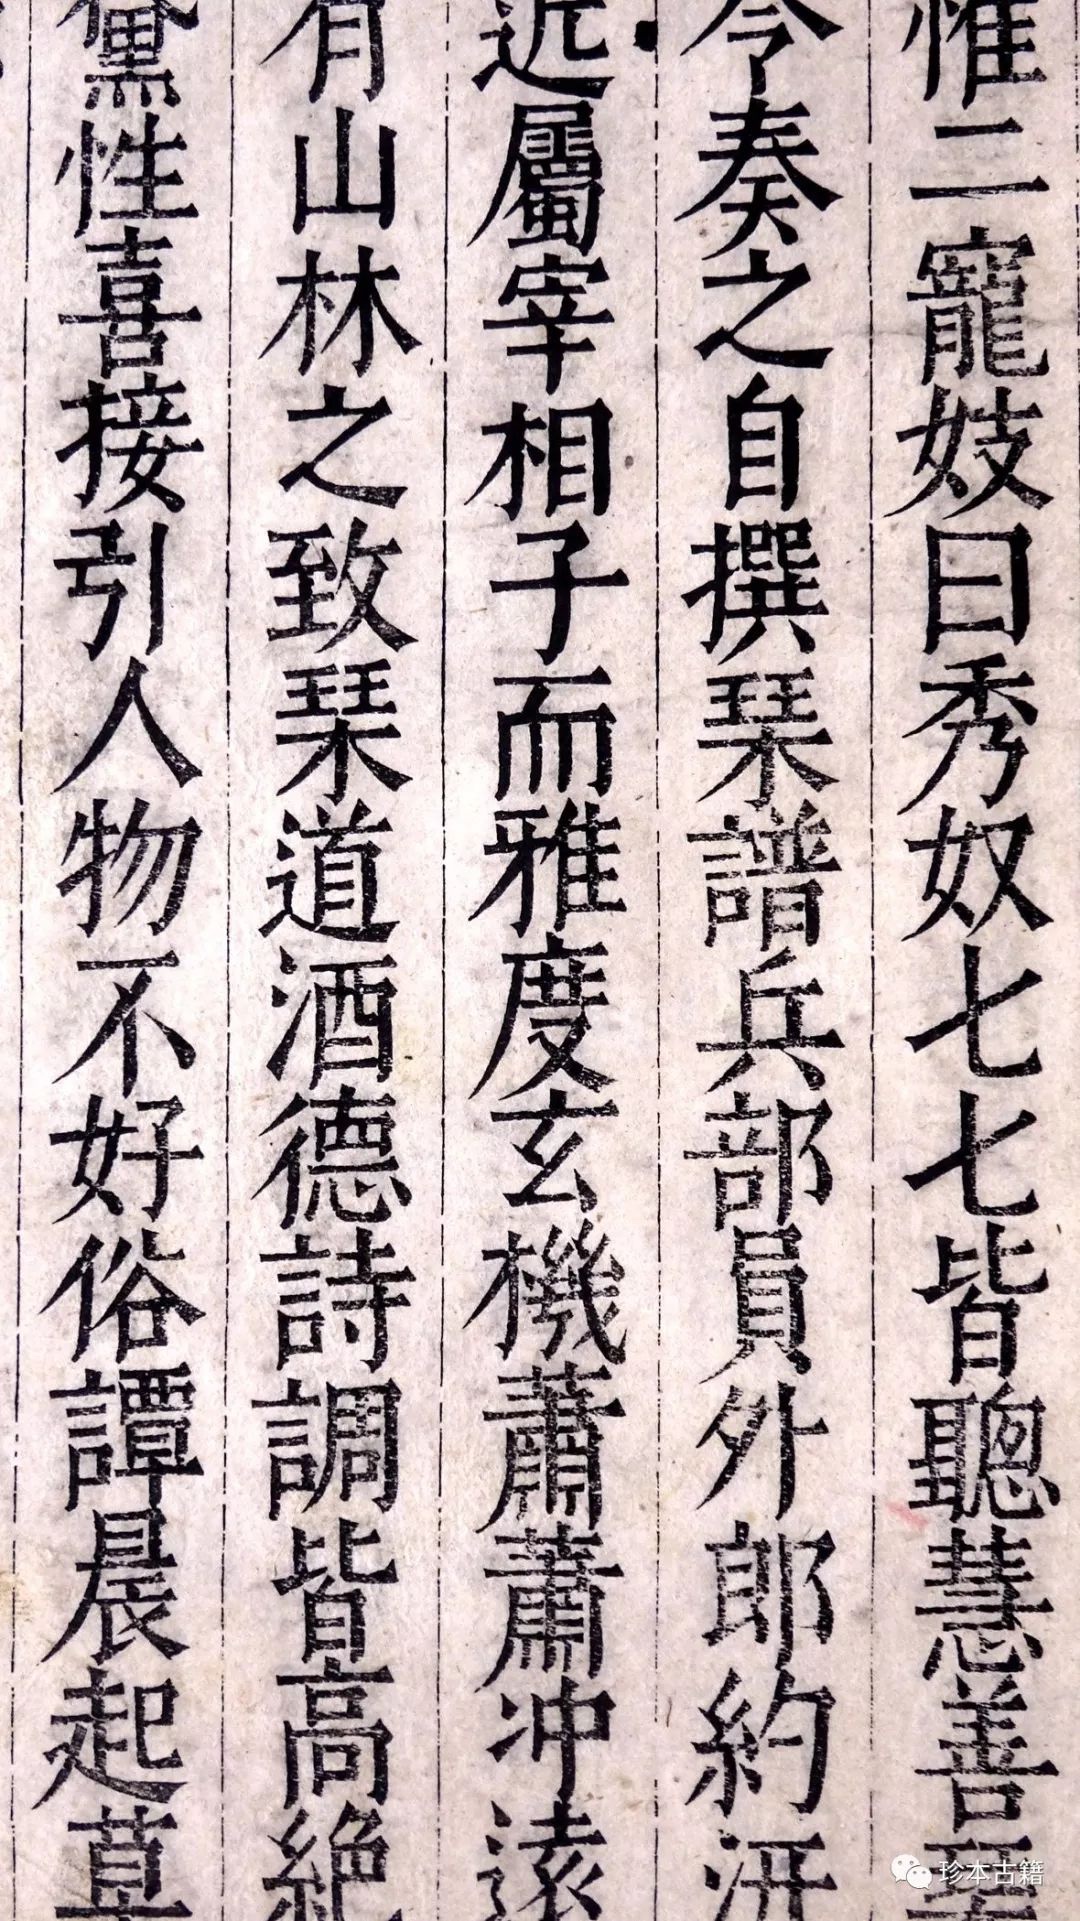 惟二寵妓曰秀奴七七皆聰慧善琴
令奏之自撰琹譜兵部員外郎約汧
近屬宰相子而雅度玄機蕭蕭冲遠
有山林之致琹道酒德詩調皆高絶
性喜接引人物不好俗譚晨起草
珍本古籍